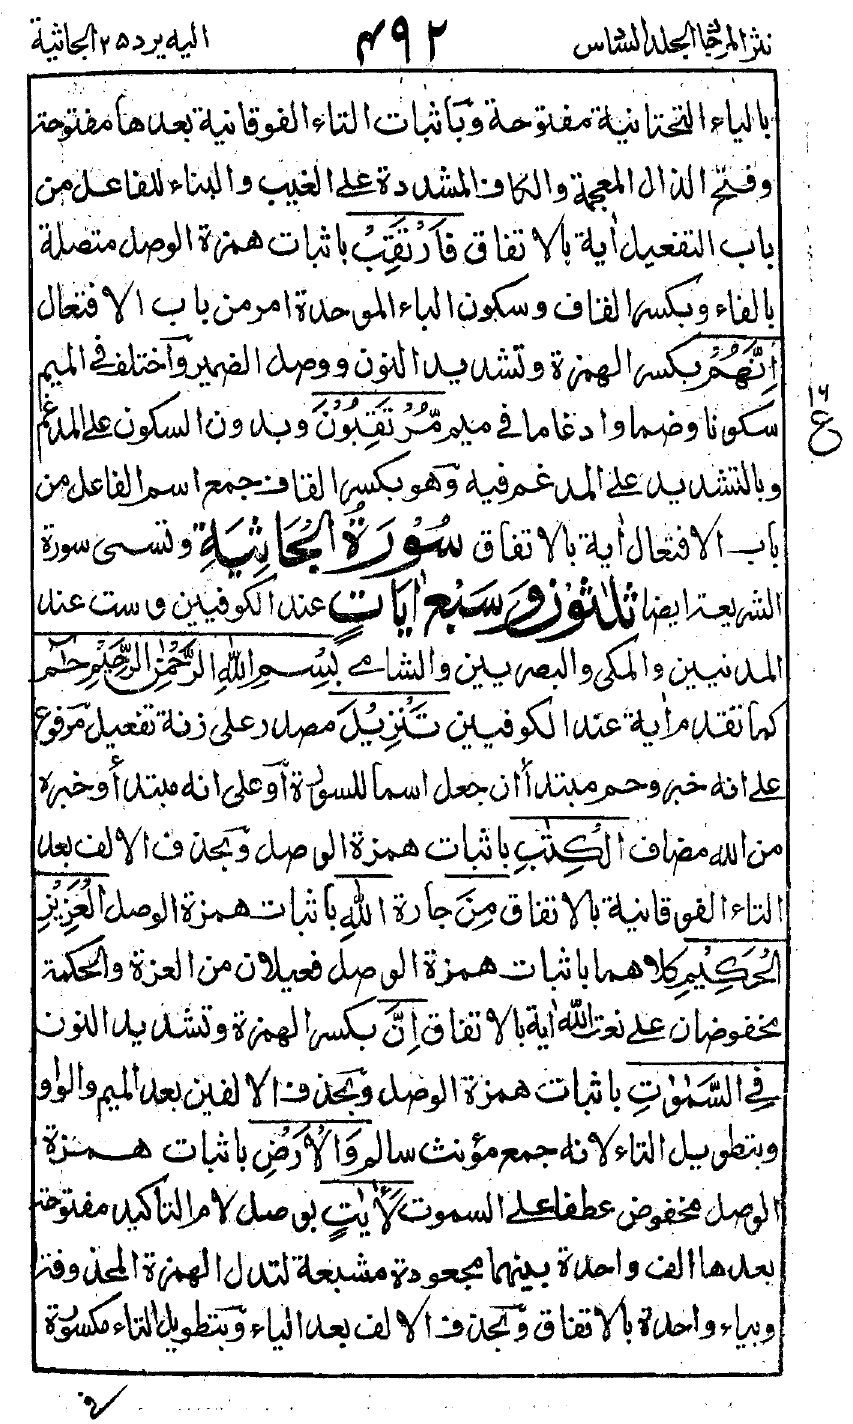 نثر المرجان المجلد السادس ۴۹۲ اليه يرد ۲۵ الجاثية
بالياء التحتانية مفتوحة وبأثبات التاء الفوقانية بعدها مفتوحة
وفتح الذال المعجمة والكاف المشددة على الغيب والبناء للفاعل من
باب التفعيل اٰية بالاتفاق فَارْتَقِبْ باثبات همزة الوصل متصلة
بالفاء وبكسر القاف وسكون الباء الموحدة امر من باب الافتعال
اِنَّهُمْ بكسر الهمزة وتشديد النون ووصل الضمير واختلف في الميم
سكونا وضما وادغاما في ميم مُّرْتَقِبُوْنَ وبدون السكون على المدغم
وبالتشديد على المدغم فيه وهو بكسر القاف جمع اسم الفاعل من
باب الافتعال اٰية بالاتفاق سُوْرَةُ الْجَاثِيَةِ وتسمى سورة
الشريعة ايضا ثلٰثون وسبع اٰيات عند الكوفيين وست عند
المدنيين والمكى والبصريين والشامے بِسْمِ اللهِ الرَّحْمٰنِ الرَّحِيْمِ حٰمٓ
كما تقدم اٰية عند الكوفيين تَنْزِيْلُ مصدر على زنة تفعيل مرفوع
على انه خبر وحم مبتدأ ان جعل اسما للسورة أو على انه مبتدأ وخبره
من الله مضاف الْكِتٰبِ باثبات همزة الوصل وبحذف الالف بعد
التاء الفوقانية بالاتفاق مِنَ جارة اللهِ باثبات همزة الوصل الْعَزِيْزِ
الْحَكِيْمِ كلاهما باثبات همزة الوصل فعيلان من العزة والحكمة
مخفوضان على نعت الله اٰية بالاتفاق اِنَّ بكسر الهمزة وتشديد النون
فِي السَّمٰوٰتِ باثبات همزة الوصل وبحذف الالفين بعد الميم والواو
وبتطويل التاء لانه جمع مؤنث سالم وَالْاَرْضِ باثبات همزة
الوصل مخفوض عطفا على السموت لَاٰيٰتٍ بوصل لام التاكيد مفتوحة
بعدها الف واحدة بينهما مجعودة مشبعة لتدل الهمزة المحذوفة
وبياء واحدة بالاتفاق وبحذف الالف بعد الياء وبتطويل التاء مكسورة
۱۶
ع
في